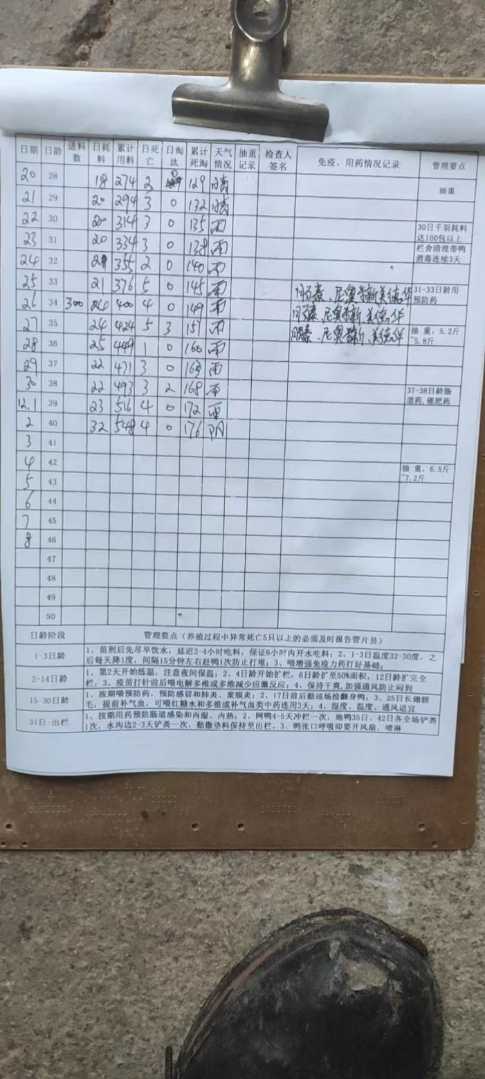 日期 日龄 送料数 日耗料 累计用料 日死亡 日淘汰 累计死淘 天气情况 抽重记录 检查人签名 免疫、用药情况记录 管理要点
20 28 18 274 2 129 晴 抽重
21 29 20 294 3 0 132 晴
22 30 20 314 3 0 135 雨 30日千羽耗料达100包以上
23 31 20 334 3 0 138 雨 栏舍清理带鸭消毒连续3天
24 32 21 355 2 0 140 雨
25 33 21 376 5 0 145 雨 31-33日龄用预防药
26 34 300 24 400 4 0 149 雨
27 35 24 424 5 3 157 雨 抽重：5.2斤-5.8斤
28 36 25 449 1 0 160 雨
29 37 22 471 3 0 163 雨
30 38 22 493 3 2 168 雨 37-38日龄肠道药,催肥药
12.1 39 23 516 4 0 172 雨
2 40 32 548 4 0 176 阴
3 41
4 42 抽重：6.5斤-7.2斤
5 43
6 44
7 45
8 46
47
48
49
50
日龄阶段 管理要点（养殖过程中异常死亡5只以上的必须及时报告管片员）
1-3日龄 1、苗到后先尽早饮水，延迟2-4小时吃料，保证6小时内开水吃料；2、1-3日温度32-30度，之
后每天降1度，间隔15分钟左右赶鸭1次防止打堆；3、喂增强免疫力药打好基础；
2-14日龄 1、第2天开始低温，注意夜间保温；2、4日龄开始扩栏，8日龄扩至50%面积，12日龄扩完全
栏；3、疫苗打针前后喂电解多维或多维减少应激反应；4、保持干爽,加强通风防止闷到
15-30日龄 1、按期喂预防药，预防感冒和肺炎、浆膜炎；2、17日龄后勤巡场捡翻身鸭；3、25日长翅膀
毛，提前补气血，可喂红糖水和多维或补气血类中药连用3天；4、湿度、温度、通风适宜
31日-出栏 1、按期用药预防肠道感染和内湿、内热；2、网鸭4-5天冲栏一次，地鸭35日、42日各全场铲粪
1次，水沟边2-3天铲粪一次，勤撒垫料保持至出栏。3、鸭张口呼吸即要开风扇、喷淋